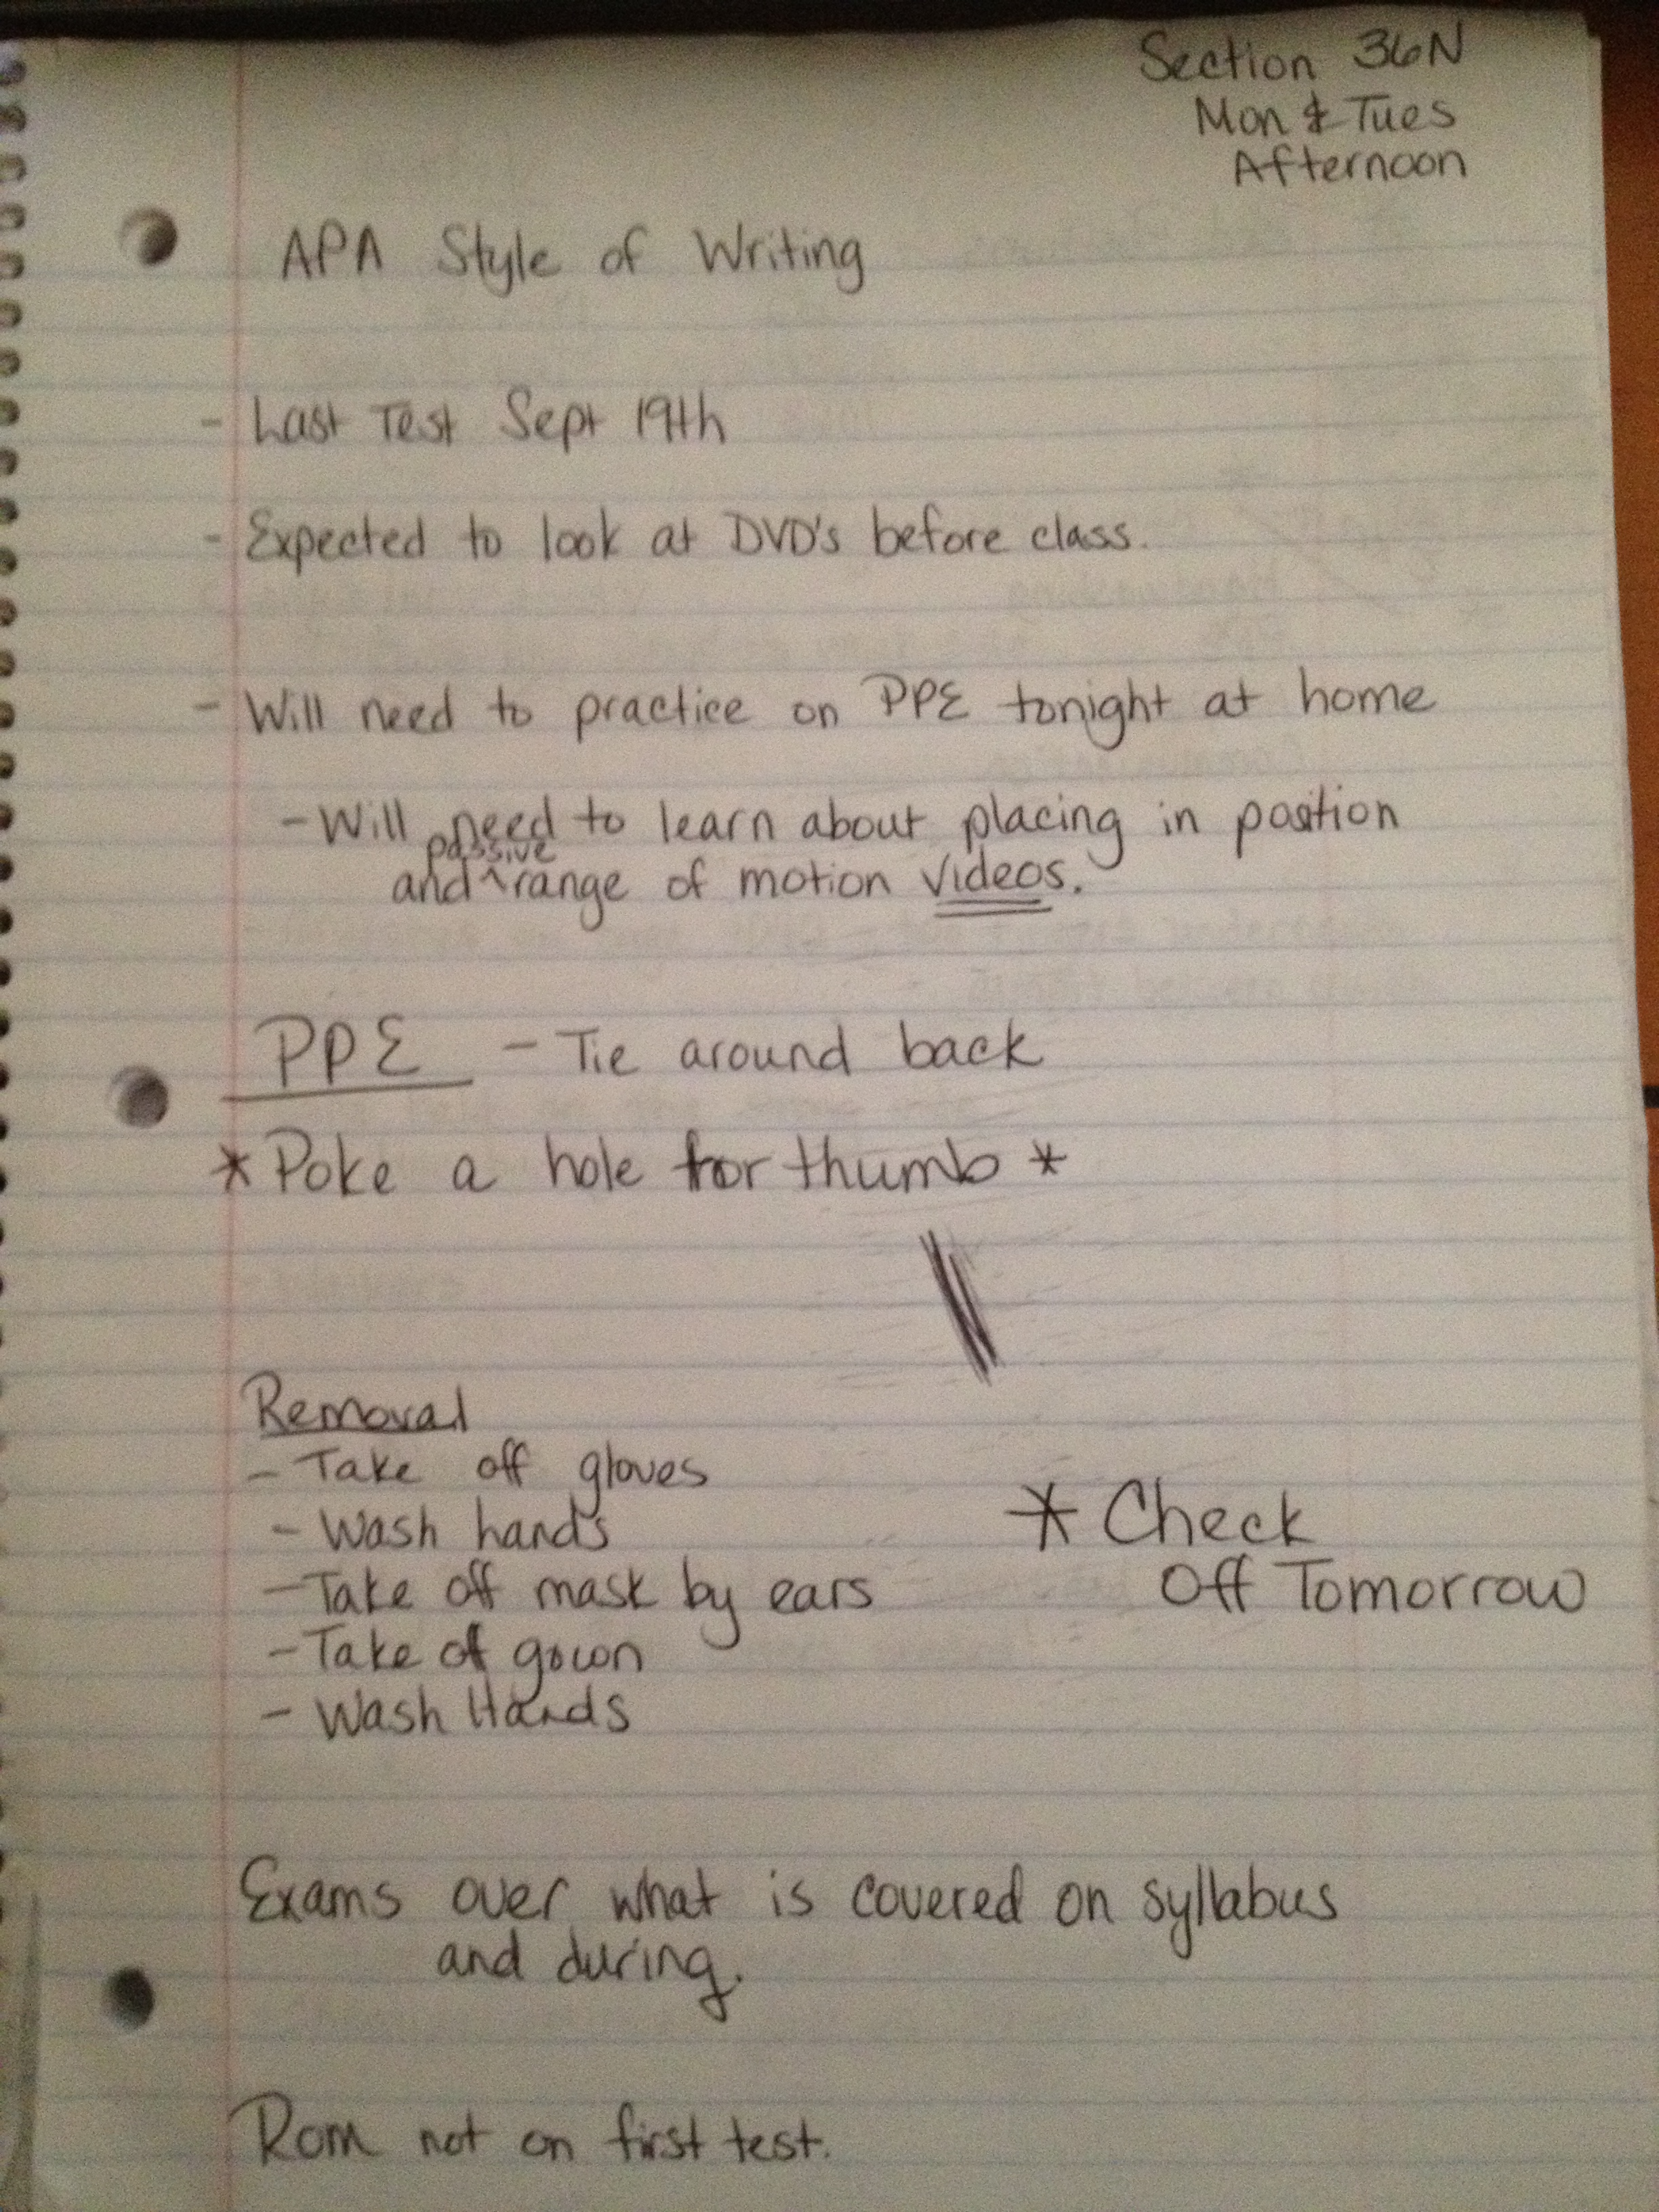 Section 36N
Mon & Tues
Afternoon
APA Style of Writing
- Last Test Sept 19th
- Expected to look at DVD's before class.
- Will need to practice on PPE tonight at home
- Will need to learn about placing in position
and ^passive range of motion videos.
PPE - Tie around back
* Poke a hole for thumb *
Removal
- Take off gloves
- Wash hands
- Take off mask by ears
- Take of gown
- Wash Hands
* Check
Off Tomorrow
Exams over what is covered on syllabus
and during.
Rom not on first test.